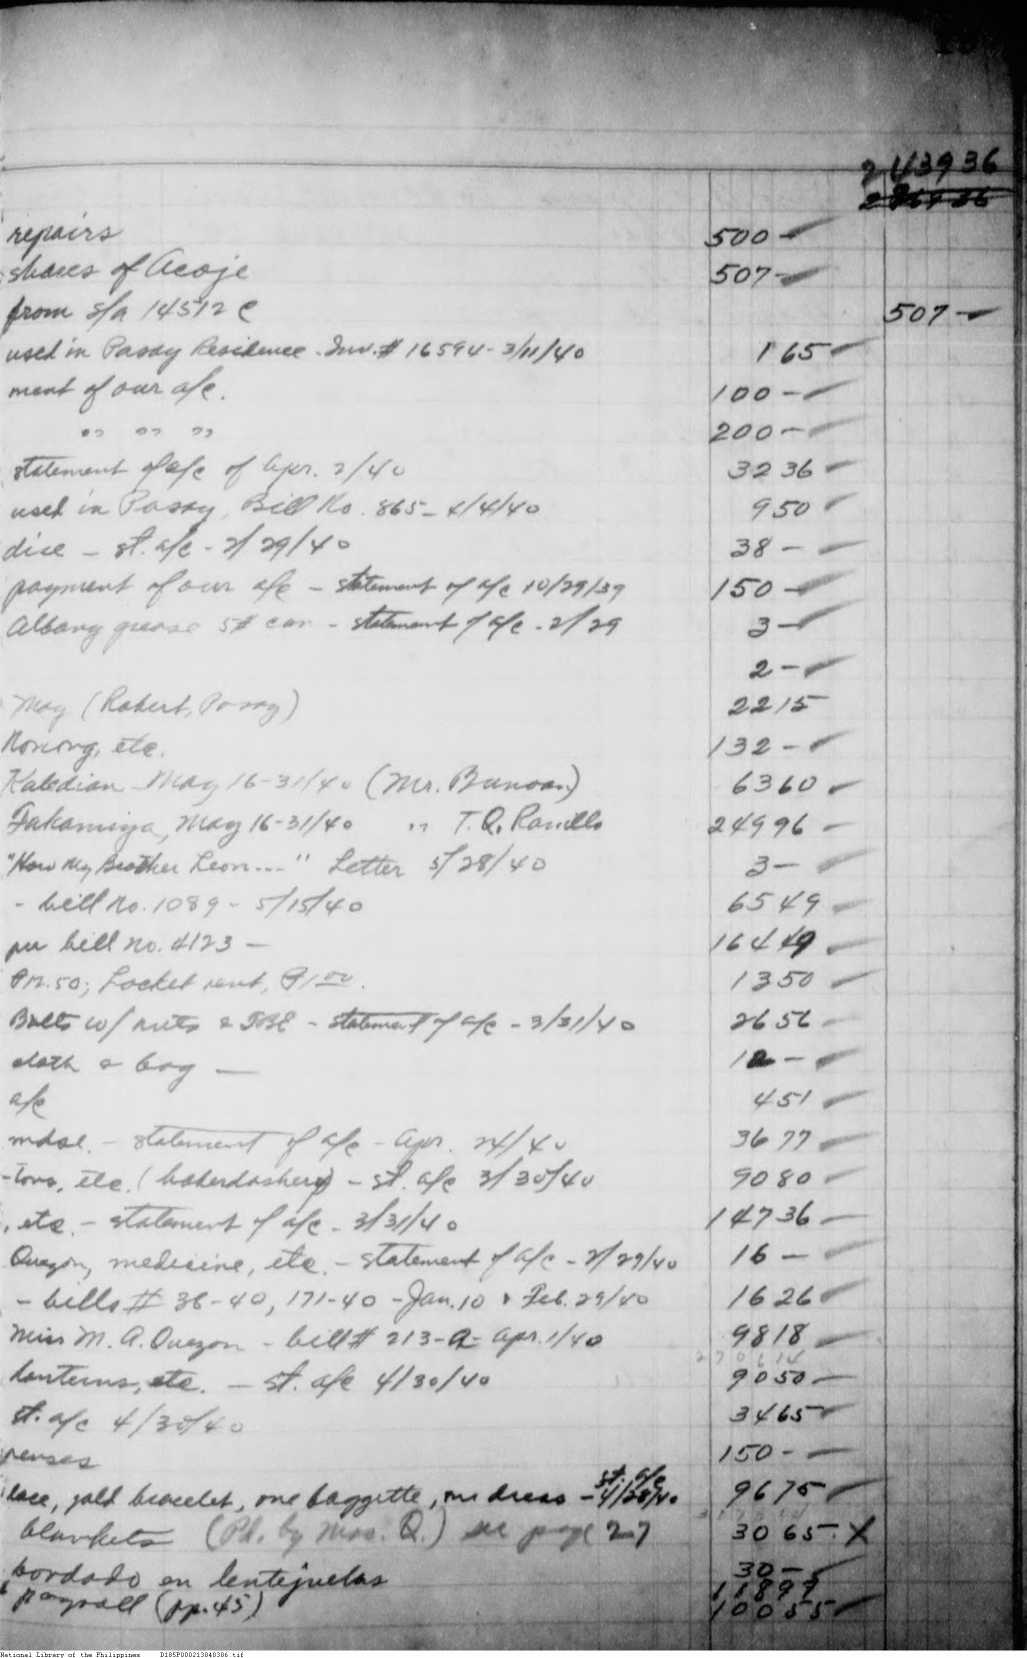 2 439 36
repairs 500 -
shares of Acoje 507 -
from s/a 14512 C 507 -
used in Pasay Residence. Inv. # 16594 - 3/11/40 1 65
ment of our a/c. 100 -
" " " 200 -
statement of a/c of Apr. 2/40 32 36
used in Pasay, Bill No. 865 - 4/4/40 9 50
dise - st. a/c - 2/29/40 38 -
payment of our a/c - statement of a/c 10/29/39 150 -
Albany grease 5# can - statement of a/c - 2/29 3 -
2 -
May (Robert, Pasay) 22 15
etc. 132 -
May 16-31/40 (Mr. Bunoan) 63 60
Takamiya, May 16-31/40 " T. Q. 249 96
"How My Brother Leon..." Letter 5/28/40 3 -
- bill no. 1089 - 5/15/40 65 49
per bill no. 4123 - 164 49
P12.50; Locket rent, P1.00. 13 50
Bolts w/ nuts & - statement of a/c - 3/31/40 26 56
cloth & bag - 12 -
a/c 4 51
mdse. - statement of a/c - Apr. 24/40 36 77
etc. (haberdashery) - st. a/c 3/30/40 90 80
, etc. - statement of a/c - 3/31/40 147 36
Quezon, medicine, etc. - statement of a/c - 2/29/40 16 -
- bills # 38-40, 171-40 - Jan. 10 & Feb. 29/40 16 26
Miss M. A. Quezon - bill # 213-A - Apr. 1/40 98 18
2 706 14
lanterns, etc. - st. a/c 4/30/40 90 50
st. a/c 4/30/40 34 65
penses 150 -
lace, gold bracelet, one baggette, one dress - st. a/c 4/28/40 96 75
blankets (Pd. by Mrs. Q.) see page 27 30 65 X
bordado en lentejuelas 30 -
118 97
payroll (pp. 45) 100 55
National Library of the Philippines D185P000213040306.tif